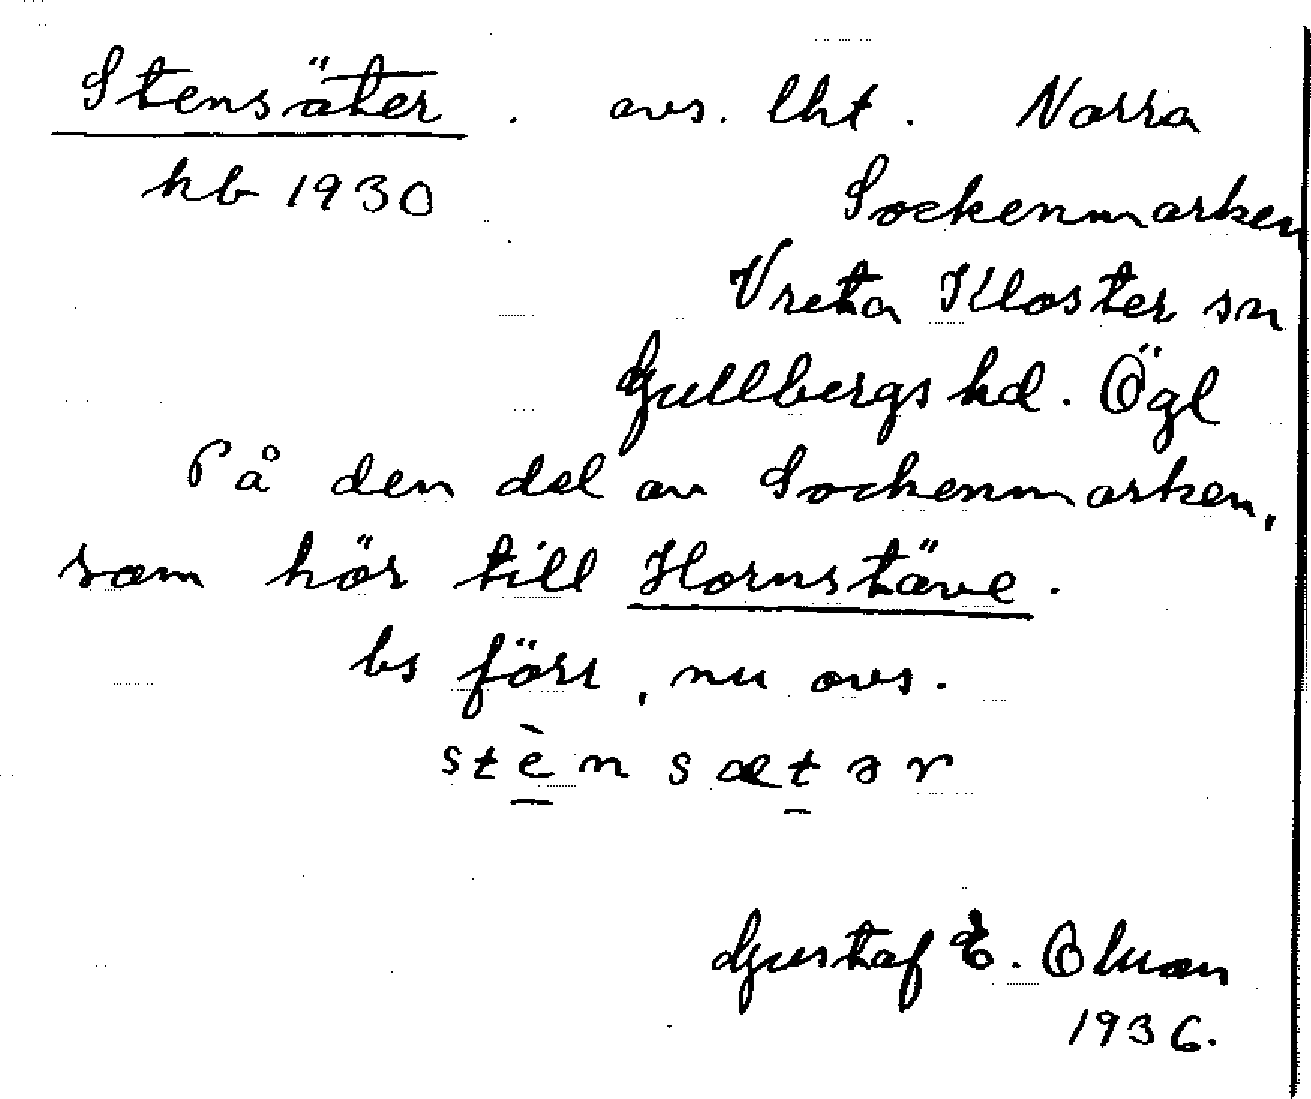 Stensäter . avs. lht. Norra
kb 1930 Sockenmarken
Vreta Kloster sn
Gullbergs hd. Ögl
På den del av Sockenmarken,
som hör till Hornstäve.
bs förr, nu avs.
stèn sætər
Gustaf E. Olman
1936.